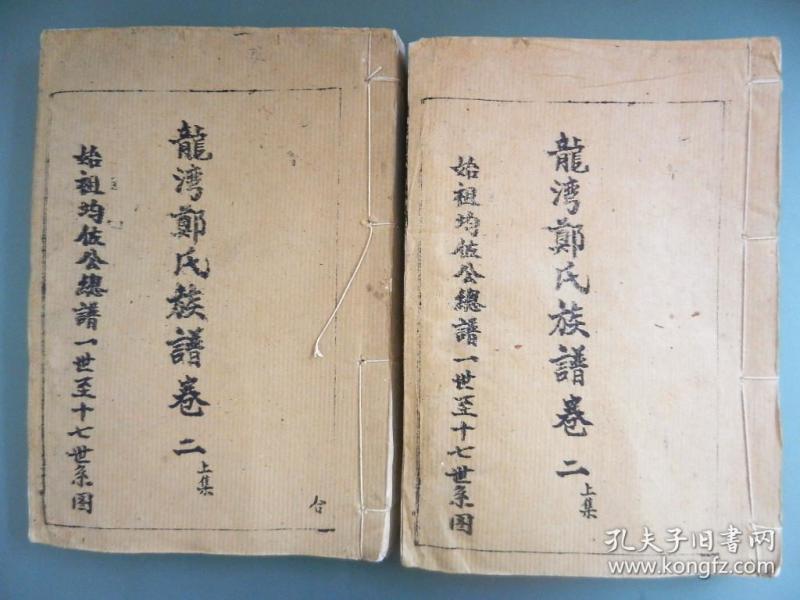 龍湾鄭氏族譜卷二
上集
始祖均佐公總譜一世至十七世系图
合
龍湾鄭氏族譜卷二
上集
始祖均佐公總譜一世至十七世系图
孔夫子旧书网
www.kongfz.com